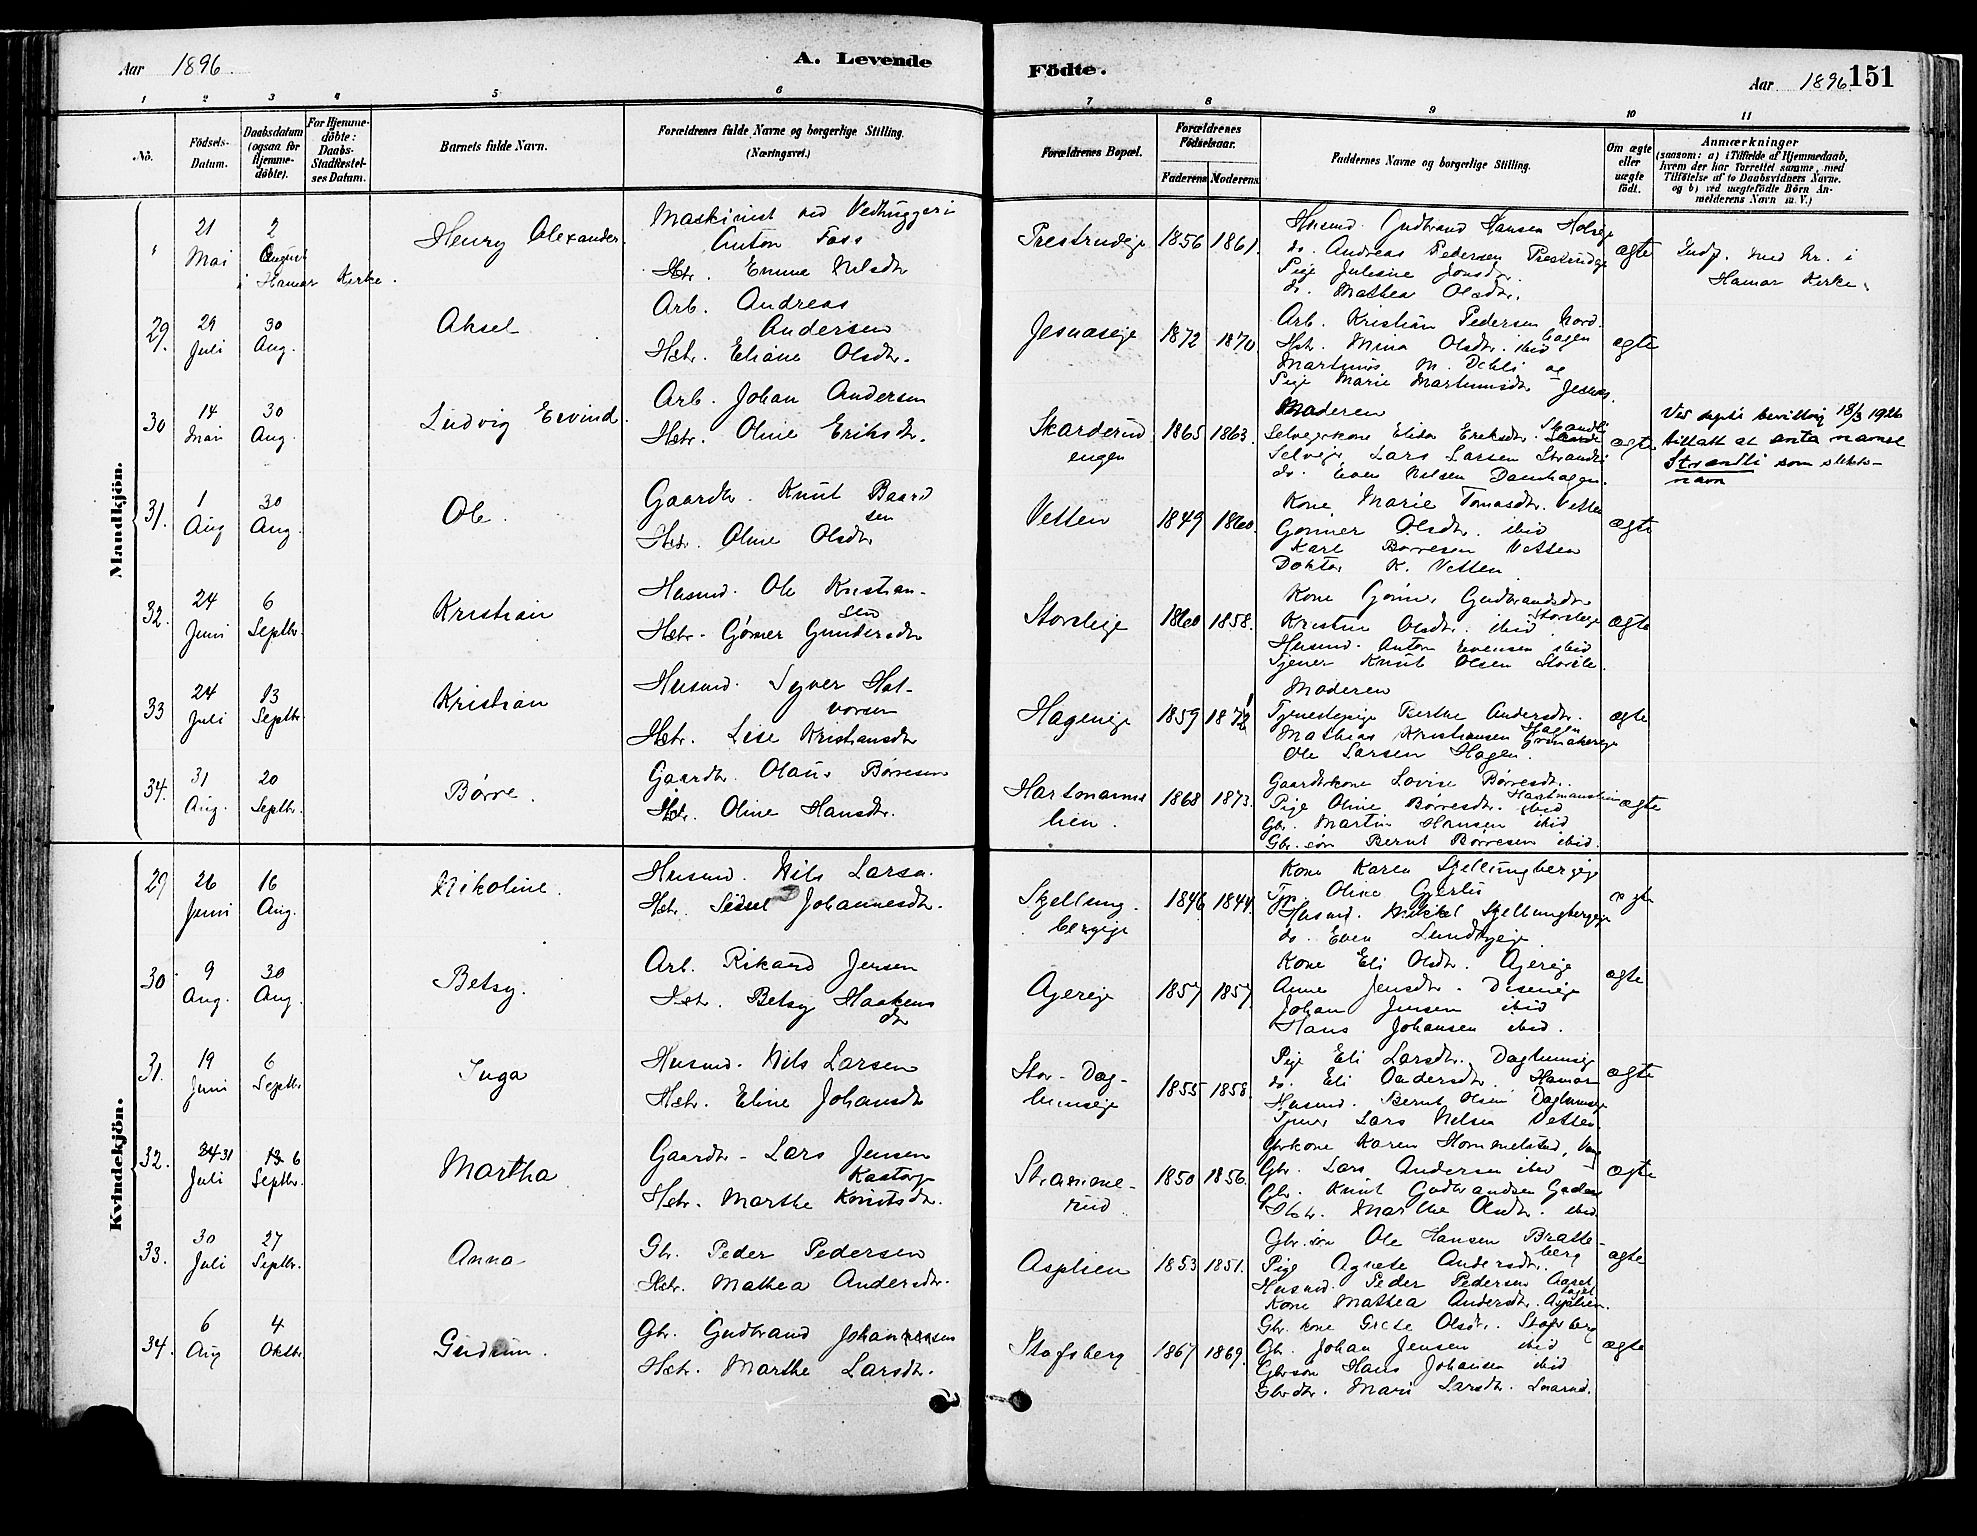 Aar 1896.
A. Levende
Födte.
Aar 1896. 151
1 2 3 4 5 6
7 8 9 10 11
No.
Födsels-
Datum.
Daabsdatum
(ogsaa for
Hjemme-
döbte).
For Hjemme-
döbte:
Daabs-
Stadfæstel-
ses Datum.
Barnets fulde Navn.
Forældrenes fulde Navne og borgerlige Stilling.
(Næringsvei.)
Forældrenes Bopæl.
Forældrenes
Födselsaar.
Faderens Moderens
Faddernes Navne og borgerlige Stilling.
Om ægte
eller
uægte
födt.
Anmærkninger
(saasom: a) i Tilfælde af Hjemmedaab,
hvem der har forrettet samme, med
Tilföielse af to Daabsvidners Navne.
og b) ved uægtefödte Börn An-
melderens Navn m. V.)
Mandkjön.
21 Mai
2 August
i Hamar Kirke.
Henry Alexander.
Maskinist ved Vedhuggeri
Anton Foss
Hstr. Emma Nilsdtr
Prestrudeje 1856 1861.
Husmd. Gudbrand Hansen
do. Andreas Pedersen Prestrudeje
Pige Juliane Jonsdtr.
do. Mathea Olsdtr.
ægte
Indf. med Nr. i
Hamar Kirke.
29. 29 Juli 30 Aug.
Aksel
Arb. Andreas
Andersen
Hstr. Eliane Olsdtr.
Jesnæseje 1872 1870.
Arb. Kristian Pedersen Nord-
hagen
Hstr. Mina Olsdtr. ibid
Martinus M. Dehli og
Pige Marie Martinusdtr Jesnes.
ægte
30 14 Mai 30 Aug.
Ludvig Eivind.
Arb. Johan Andersen
Hstr. Oline Eriksdtr.
Skarderud
engen
1865 1863.
Moderen
Selveierkone Elida Eriksdtr. Strandli
Selveier Lars Larsen Strandli
do. Even Nilsen Damhagen.
ægte
Ved depts bevilling 18/3 1926
tillatt at anta navnet
Strandli som slekts-
navn
31. 1 Aug 30 Aug.
Ole.
Gaardbr. Knut Baard
sen
Hstr. Oline Olsdtr
Vetten 1849 1860.
Kone Marie Tomasdtr. Vetten
Gønner Olsdtr. ibid
Karl Børresen Vetten
Doktor K. Vetten.
ægte
32. 24 Juni 6 Septbr.
Kristian
Husmd. Ole Kristian-
sen
Hstr. Gørner Gundersdtr
Storsleje 1860 1858.
Kone Gønner Gudbrandsdtr
Storsleje
Kristine Olsdtr. ibid
Husmd. Anton Evensen ibid
Tjener Knut Olsen Storsle.
ægte
33 24 Juli 13 Septbr.
Kristian
Husmd. Syver Hal-
vorsen
Hstr. Lise Kristiansdtr
Hageneje 1859 1872
Moderen
Tjenestepige Berthe Andersdtr.
Hagen
Mathias Kristiansen
Ole Larsen Hagen.
ægte
34. 31 Aug. 20 Septbr.
Børre.
Gaardbr. Olaus Børresen
Hstr. Oline Hansdtr.
Hartmanns
lien.
1868 1873.
Gaardbrkone Lovise Børresdtr.
Hartmanslien
Pige Oline Børresdtr. ibid
Gbr. Martin Hansen ibid
Gbr. søn Bernt Børresen ibid.
ægte
Kvindekjön.
29 26 Juni 16 Aug.
Nikoline.
Husmd. Nils Larsen.
Hstr. Sidsel Johannesdtr.
Skjellung-
bergeje
1846 1844.
Kone Karen Skjellungbergeje
Tjp. Oline Gjerlu
Husmd. Mikkel Skjellungbergeje
do. Even Lundbyeje.
ægte
30. 9 Aug. 30 Aug.
Betsy.
Arb. Rikard Jensen
Hstr. Betsy Haakens
dtr
Ajereje 1857 1857.
Kone Eli Olsdtr. Ajereje
Anne Jensdtr. Diseneje
Johan Jensen ibid
Hans Johansen ibid.
ægte
31. 19 Juni 6 Septbr.
Inga
Husmd. Nils Larsen
Hstr. Eline Johansdtr
Stor-Dag-
lumseje
1855 1858.
Pige Eli Larsdtr. Daglumseje
do. Eli Andersdtr. Hamar
Husmd. Bernt Olsen Daglumseje
Tjener Lars Nilsen Vetten.
ægte
32. 24 31 Juli 13 6 Septbr.
Martha
Gaardbr. Lars Jensen
Kastorp
Hstr. Marthe Knutsdtr.
1850 1856.
Gbrkone Karen Hommelstad, Vang
Gbr. Lars Andersen ibid
Gbr. Knut Gudbrandsen
Hstr. Marthe Olsdtr. ibid
ægte
33. 30 Juli 27 Septbr.
Anna
Gbr. Peder Pedersen
Hstr. Mathea Andersdtr.
Asplien 1853 1851.
Gbr. søn Ole Hansen Bratte-
berg
Pige Agnete Andersdtr.
Husmd. Peder Pedersen
Kone Mathea Andersdtr. Asplien.
ægte
34. 6 Aug 4 Oktbr.
Gudrun.
Gbr. Gudbrand Johannesen
Hstr. Marthe Larsdtr.
Stafsberg 1867 1869.
Gbr. kone Grete Olsdtr. Stafsberg
Gbr. Johan Jensen ibid
Gbrsøn Hans Johansen ibid
Gbrdtr. Mari Larsdtr.
ægte